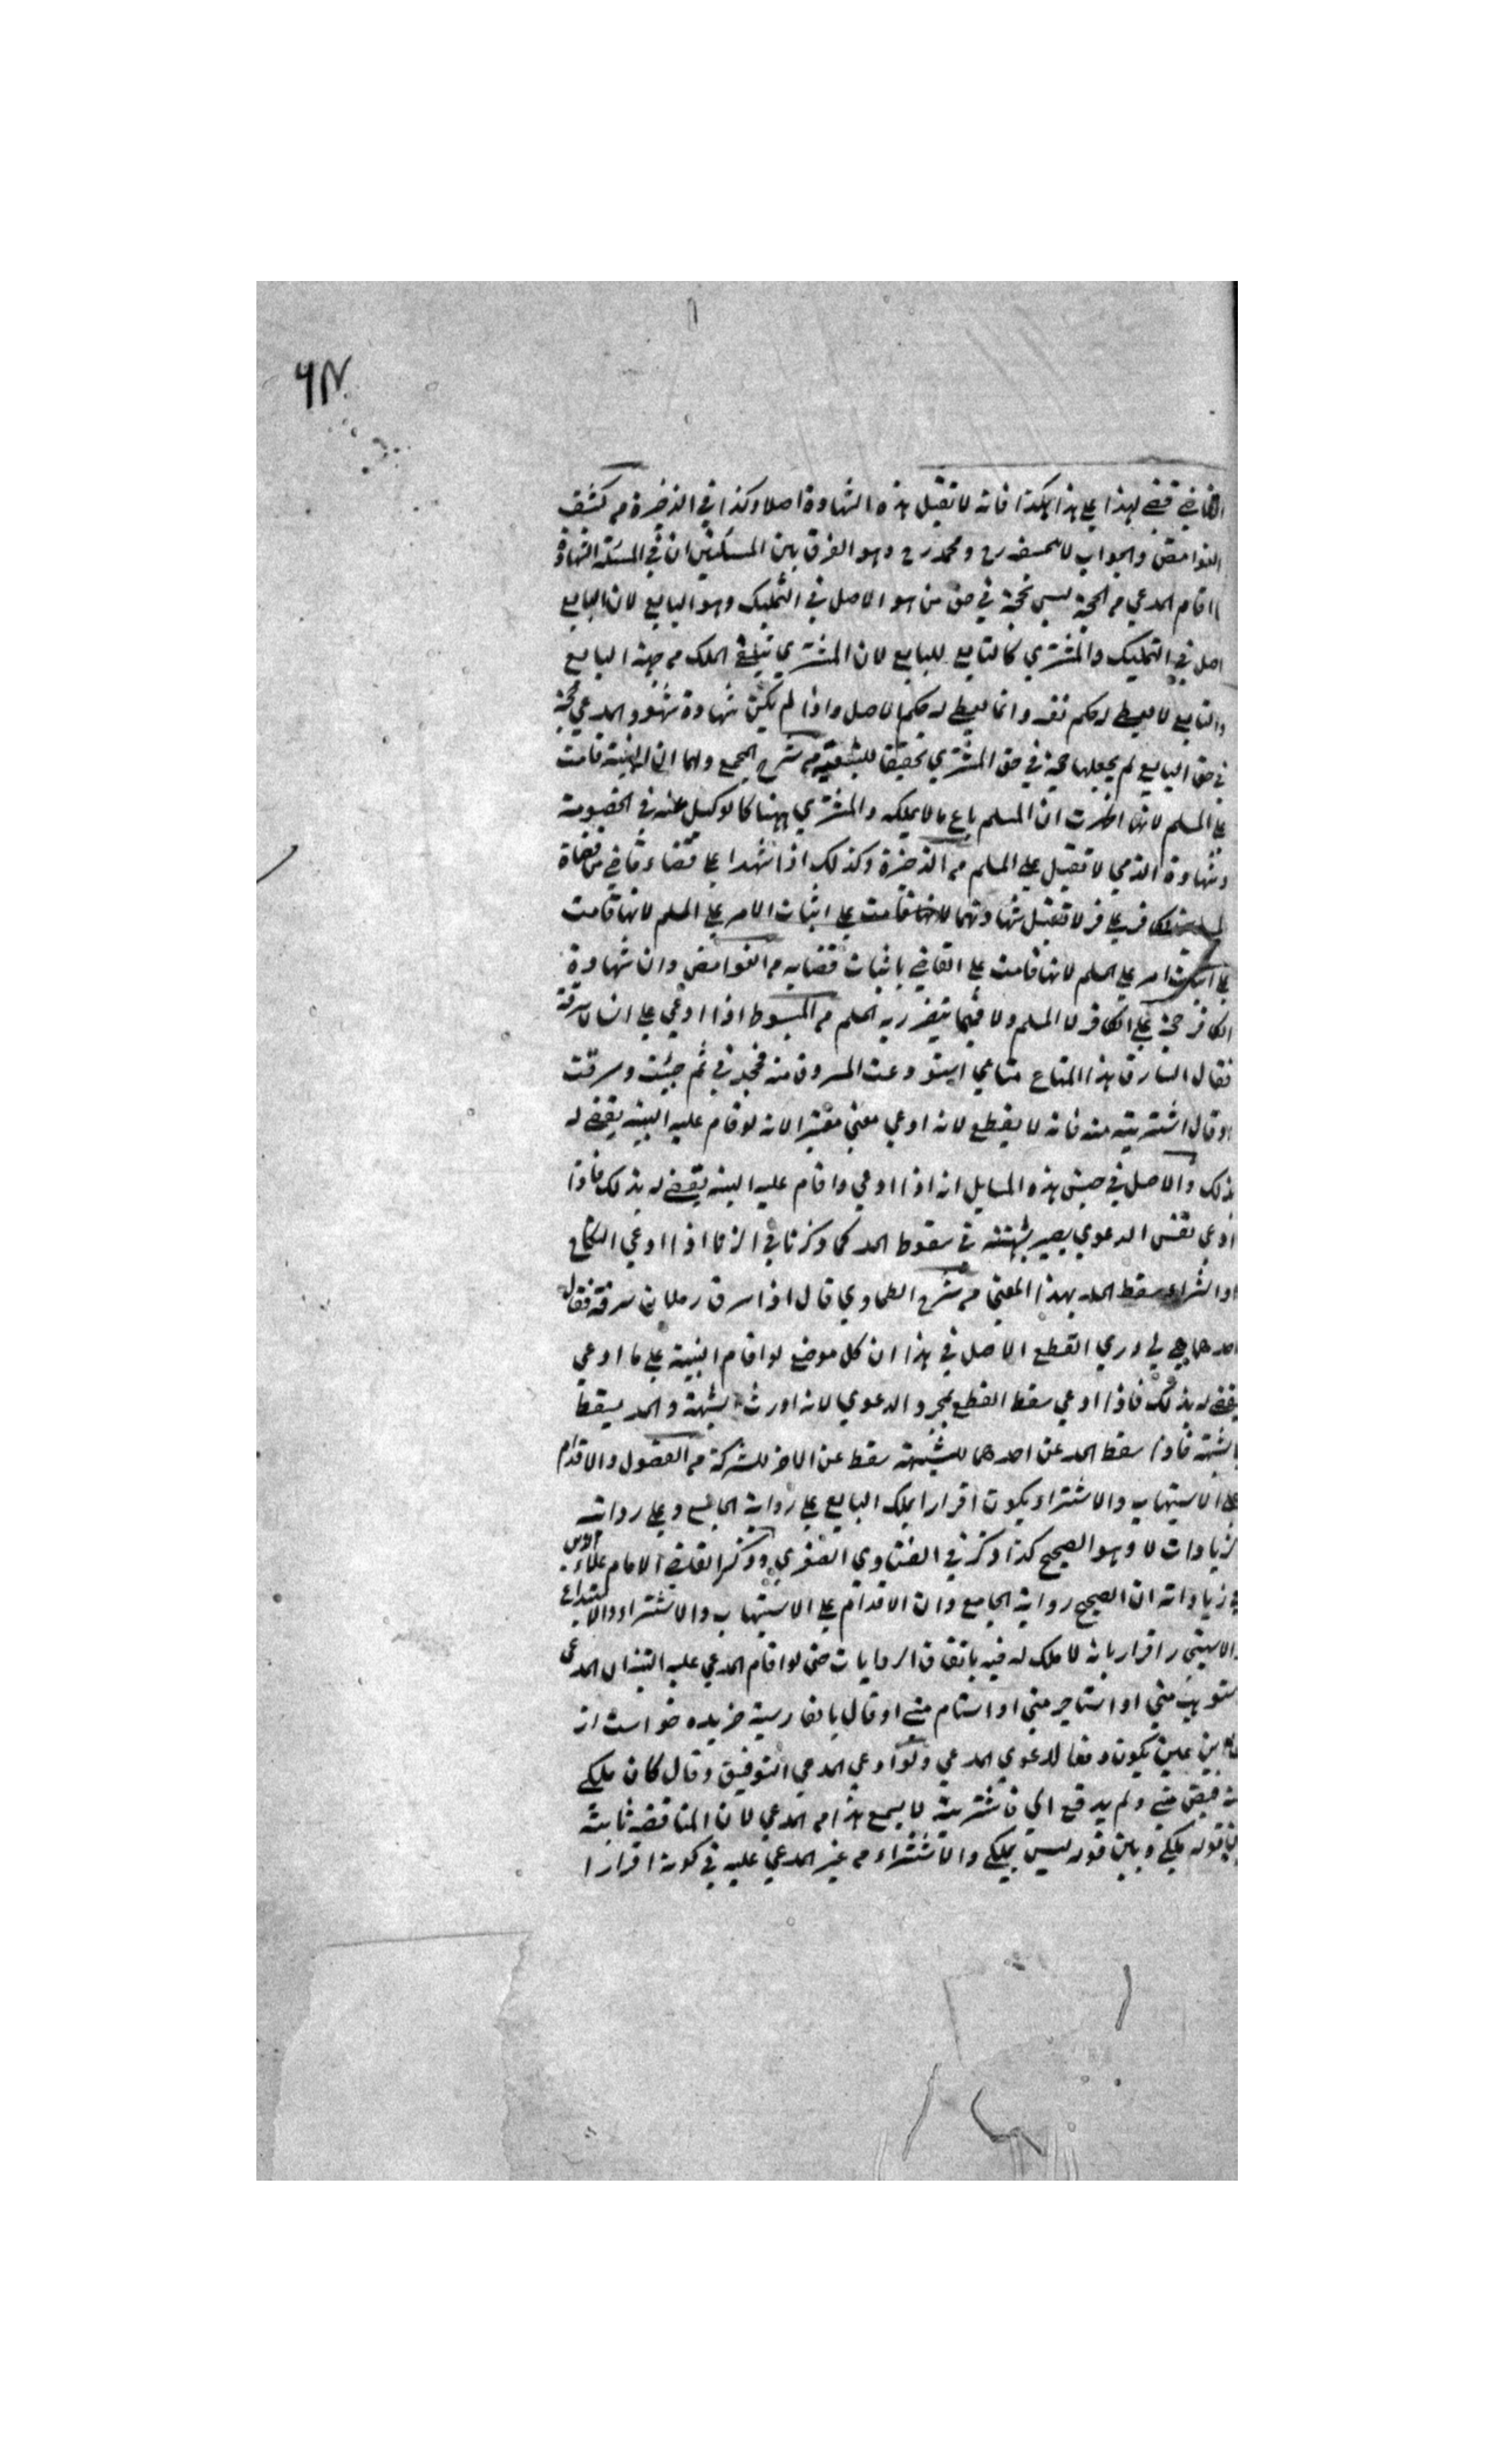 ٦٨
القاضي قضى لهذا على هذا بكذا فانه لا تقبل هذه الشهادة اصلا وكذا في الذخيرة من كشف
الغوامض والجواب لابيحنيفه رح ومحمد رح وهو الفرق بين المسئلتين ان في المسئلة الشهادة
ما اقام المدعي من الحجة ليس بحجة في حق من هو الاصل في التمليك وهو البايع لان البايع
اصل في التمليك والمشتري كالتابع للبايع لان المشتري يتلقى الملك من جهة البايع
والتابع لا يعطى له حكم نفسه وانما يعطى له حكم الاصل واذا لم يكن شهادة شهود المدعي حجة
في حق البايع لم يجعلها حجة في حق المشتري تحقيقا للتبعية من شرح الجمع ولهما ان البينة قامت
على المسلم لانها اظهرت ان المسلم باع ما لا يملكه والمشتري ههنا كالوكيل عنه في الخصومة
وشهادة الذمي لا تقبل على المسلم من الذخيرة وكذلك اذا شهدا على قضاء قاضي من قضاة
المسلمين لكافر على كافر لا تقبل شهادتهما لانها قامت على اثبات الامر على المسلم لانها قامت
على اثبات امر على المسلم لانها قامت على القاضي باثبات قضايه من الغوامض وان شهادة
الكافر حجة على الكافر لا المسلم ولا فيما يتضرر به المسلم من المبسوط اذا ادعي على انسان سرقة
فقال السارق هذا المتاع متاعي استودعت المسروق منه فجحدني ثم جيئت وسرقت
او قال اشتريته منه فانه لا يقطع لانه ادعي معني معتبرا لانه لو قام عليه البينه يقضى له
بذلك والاصل في جنس هذه المسايل انه اذا ادعي واقام عليه البينه يقضى له بذلك فاذا
ادعي نفس الدعوي يصير شبهته في سقوط الحد كما ذكرنا في الزنا اذا ادعي النكاح
او الشراء سقط الحد بهذا المعني من شرح الطحاوي قال اذا سرق رجلان سرقة فقال
احدهما هي لي دري القطع الاصل في هذا ان كل موضع لو اقام البينة على ما ادعي
يقضى له بذلك فاذا ادعي سقط القطع بمجرد الدعوي لانه اورث شبهة والحد يسقط
بالشبهة فاذا سقط الحد عن احدهما للشبهة سقط عن الاخر للشركة من الفصول والاقدام
على الاستيهاب والاشتراء يكون اقرارا بملك البايع على رواية الجامع وعلى رواية
الزيادات لا وهو الصحيح كذا ذكر في الفتاوي الصغري وذكر القاضي الامام علاء
في زياداته ان الصحيح رواية الجامع وان الاقدام على الاستيهاب والاشتراء والاستيداع
والاستيجار اقرار بانه لا ملك له فيه باتفاق الروايات حتى لو اقام المدعي عليه البينة ان المدعي
استوهب مني او استاجر مني او استام مني او قال بالفارسية خريده خواست از
من اين عين يكون دفعا لدعوي المدعي ولو ادعي المدعي التوفيق وقال كان ملكي
قبض مني ولم يدفع الي فاشتريته لا يسمع هذا من المدعي لان المناقضه ثابتة
بين قوله ملكي وبين قوله ليس بملكي والاشتراء من غير المدعي عليه في كونه اقرارا